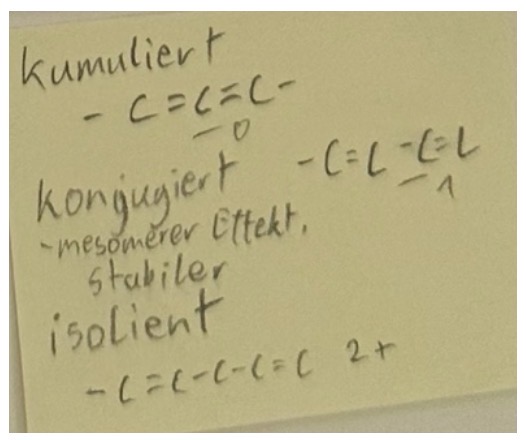 kumuliert
- C = C = C -
0
konjugiert -C=C-C=C
1
-mesomerer Effekt,
stabiler
isoliert
-C=C-C-C=C 2+